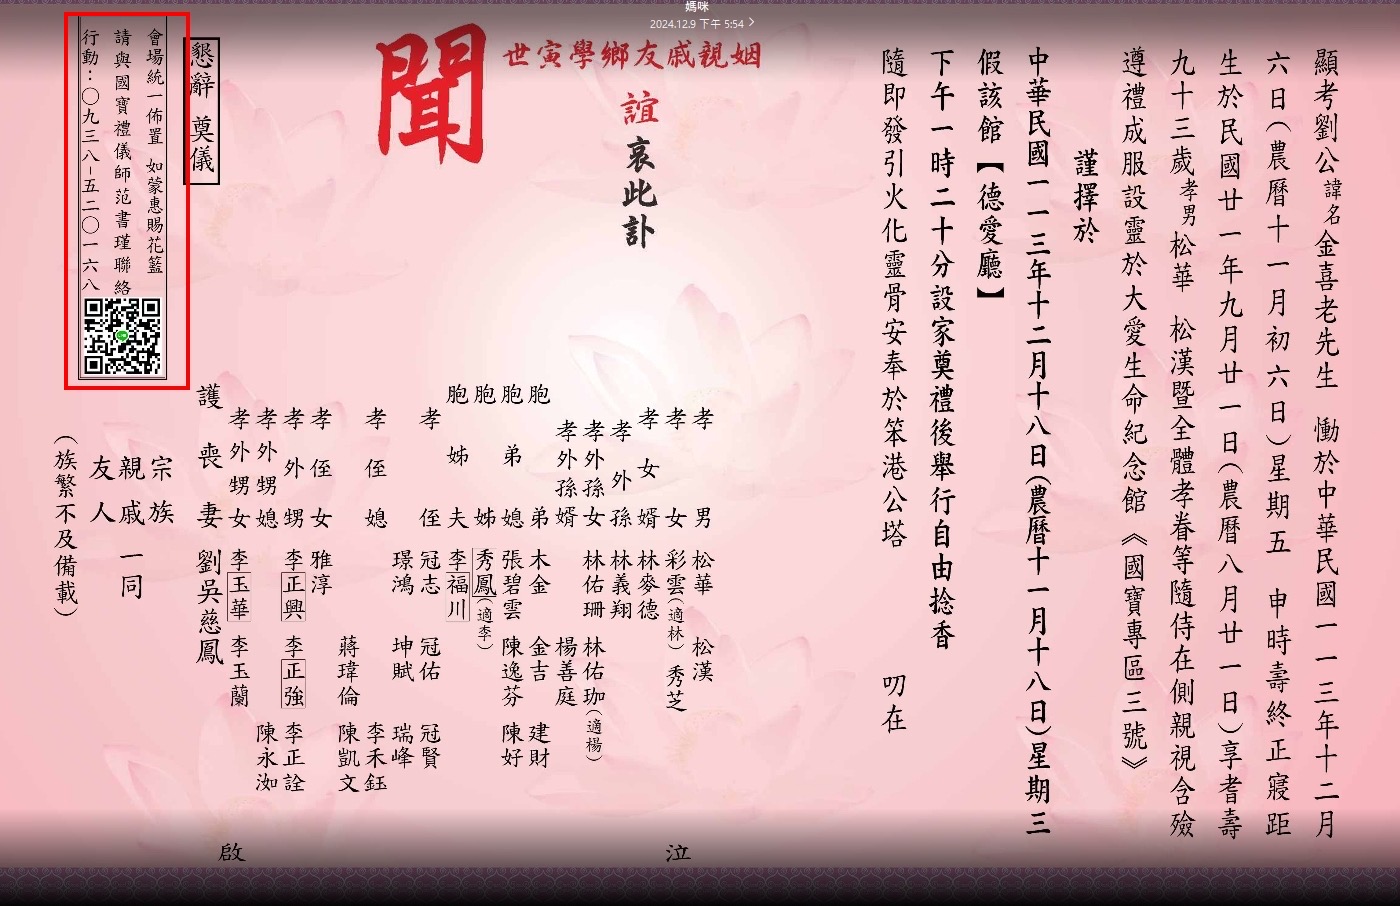 媽咪
2024.12.9 下午 5:54
顯考劉公諱名金喜老先生 慟於中華民國一一三年十二月
六日(農曆十一月初六日)星期五 申時壽終正寢距
生於民國廿一年九月廿一日(農曆八月廿一日)享耆壽
九十三歲孝男松華 松漢暨全體孝眷等隨侍在側親視含殮
遵禮成服設靈於大愛生命紀念館《國寶專區三號》
謹擇於
中華民國一一三年十二月十八日(農曆十一月十八日)星期三
假該館【德愛廳】
下午一時二十分設家奠禮後舉行自由捻香
隨即發引火化靈骨安奉於笨港公塔 叨在
姻親戚友鄉學寅世
誼
哀此訃
聞
孝男 松華 松漢
孝女 彩雲(適林) 秀芝
孝女婿 林麥德
孝外孫 林義翔
孝外孫女 林佑珊 林佑珈(適楊)
孝外孫婿 楊善庭
胞弟 木金 金吉 建財
胞弟媳 張碧雲 陳逸芬 陳好
胞姊 秀鳳(適李)
胞姊夫 李福川
孝侄 冠志 冠佑 冠賢
璟鴻 坤賦 瑞峰
孝侄媳 李禾鈺
蔣瑋倫 陳凱文
孝侄女 雅淳
孝外甥 李正興 李正強 李正詮
孝外甥媳 陳永洳
孝外甥女 李玉華 李玉蘭
護喪妻 劉吳慈鳳
泣
啟
宗族
親戚 一同
友人
(族繁不及備載)
懇辭 奠儀
會場統一佈置 如蒙惠賜花籃
請與國寶禮儀師范書瑾聯絡
行動：〇九三八–五二〇一六八